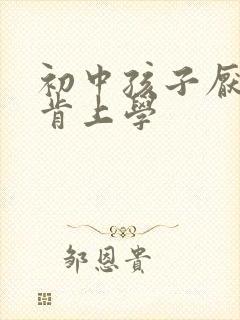 初中孩子厌
肯上學
邹恩貴